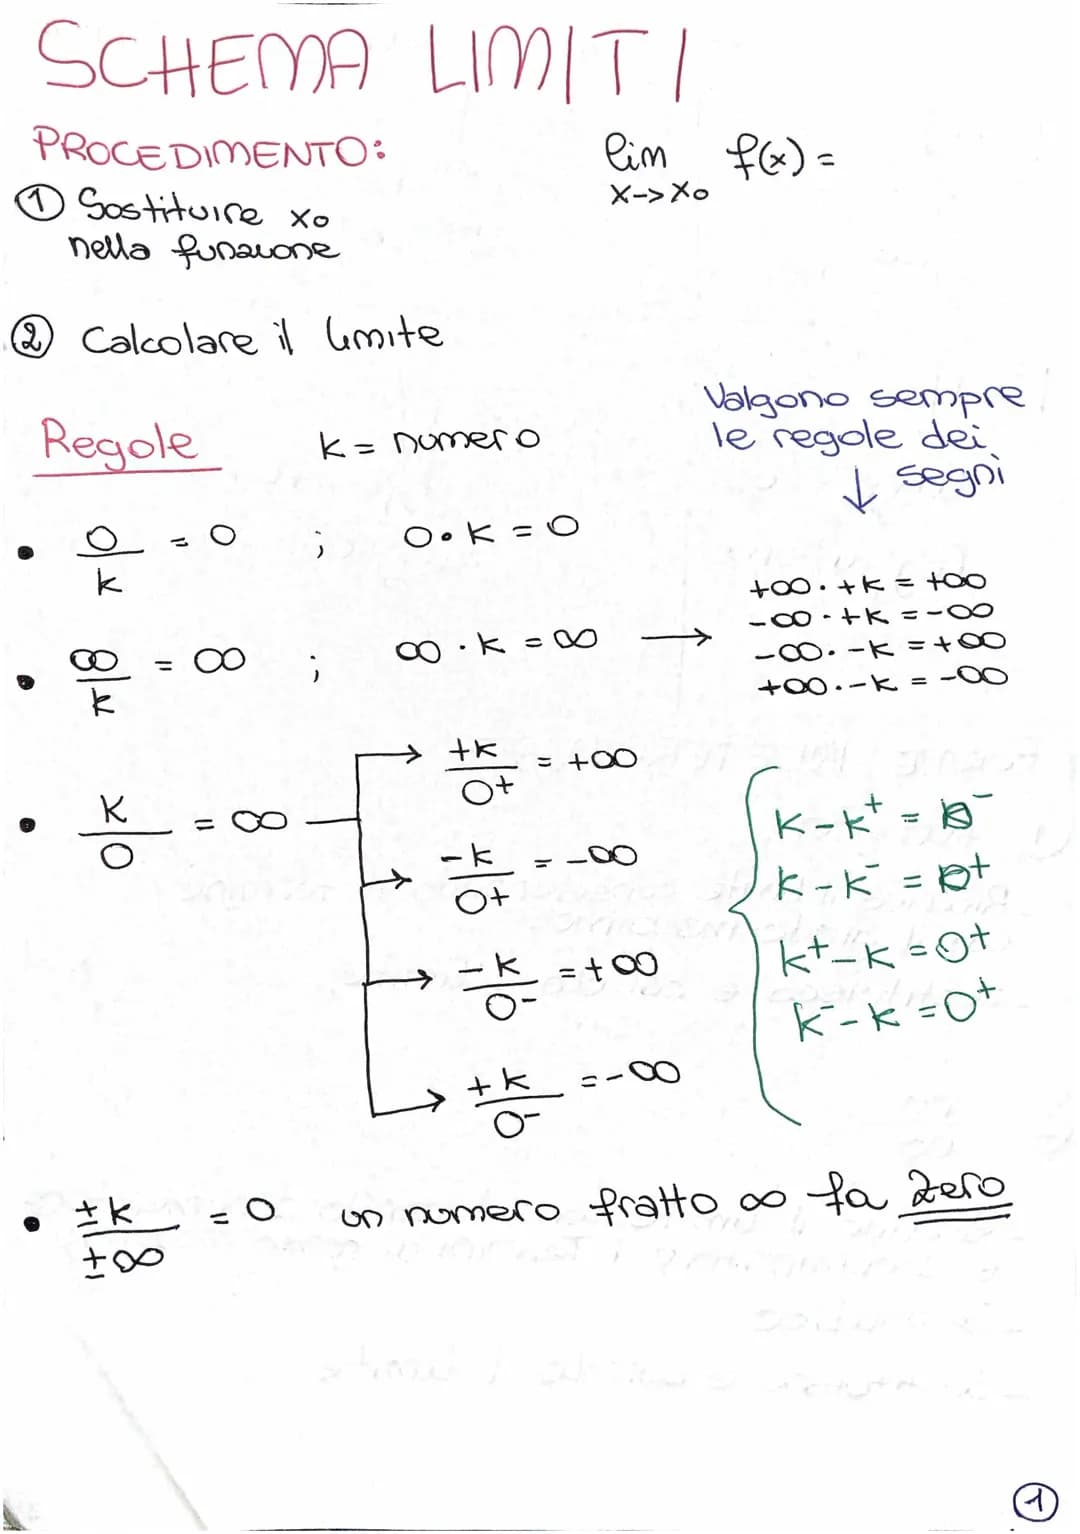 SCHEMA LIMITI
PROCEDIMENTO:
lim f(x) =
x->x0
① Sostituire x0
nella funzione
② Calcolare il limite
Valgono sempre
le regole dei
↓ segni
Regole
k = numero
• 0/k = 0 ; 0•k = 0
• ∞/k = ∞ ; ∞·k = ∞ →
+∞·+k = +∞
-∞·+k = -∞
-∞·-k = +∞
+∞·-k = -∞
• k/0 = ∞
→ +k/0+ = +∞
→ -k/0+ = -∞
→ -k/0- = +∞
→ +k/0- = -∞
k-k⁺ = 0⁻
k-k⁻ = 0⁺
k⁺-k = 0⁺
k⁻-k = 0⁺
• ±k/±∞ = 0 un numero fratto ∞ fa zero
①